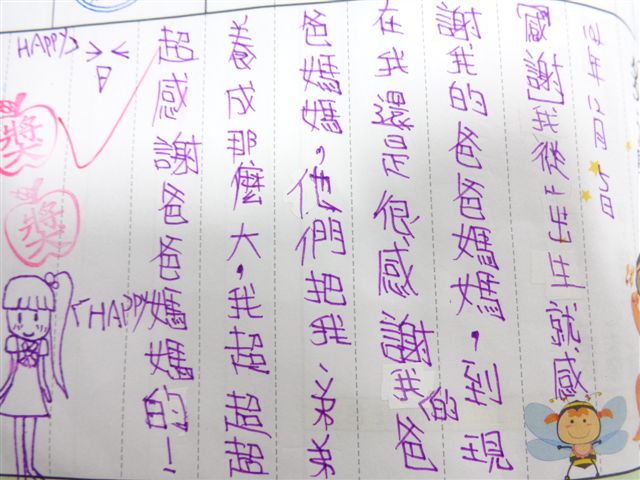 年12月5日
[感謝]我從一出生就感
謝我的爸爸媽媽，到現
在我還是很感謝我的爸
爸媽媽，他們把我
養成那麼大，我超超超
超感謝爸爸媽媽的！
HAPPY
獎
獎
HAPPY